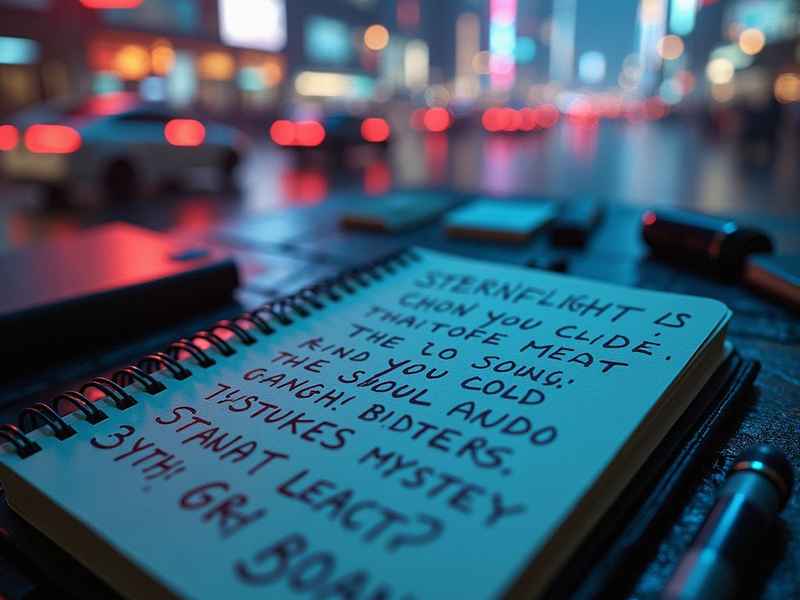 STERNFLIGHT IS
CHON YOU CLIDE.
THAITOFE MEAT
THE 20 SOING.
KIND YOU COLD
THE SOUL ANDO
GANGH! BIDTERS.
TYSTUKES MYSTEY
STANAT LEACT?
3YTH! GRH BOAN